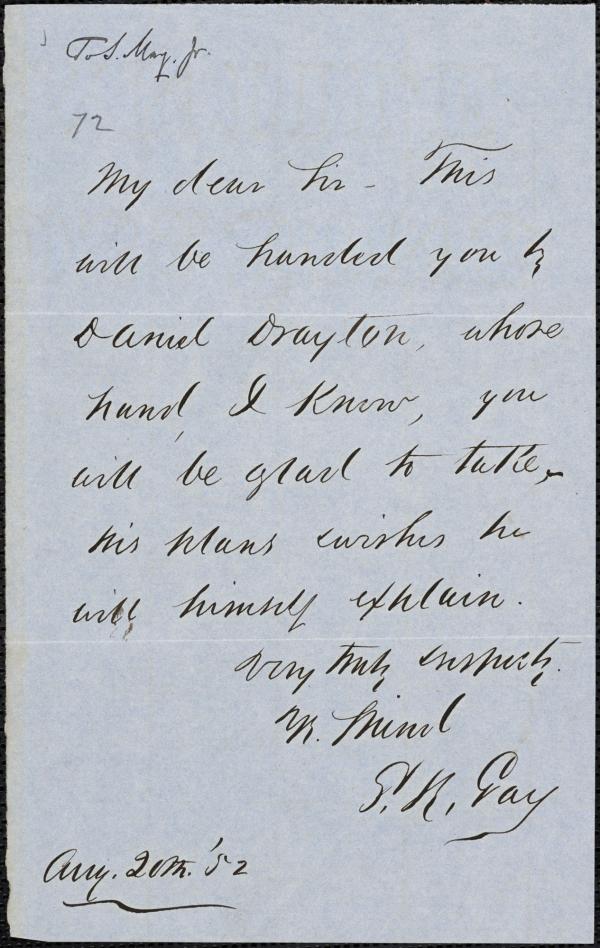 To S. May, Jr.
72
My dear Sir - This
will be handed you by
Daniel Drayton, whose
hand, I know, you
will be glad to take.
His plans & wishes he
will himself explain.
Very truly & respectly.
Yr. friend
S. H. Gay
Aug. 20th. '52